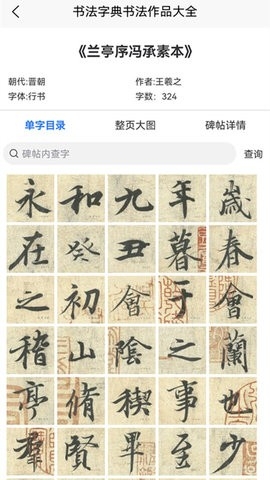 书法字典书法作品大全
《兰亭序冯承素本》
朝代:晋朝 作者:王羲之
字体:行书 字数: 324
单字目录 整页大图 碑帖详情
碑帖内查字 查询
永 和 九 年 歲
在 癸 丑 暮 春
之 初 會 于 會
稽 山 陰 之 蘭
亭 脩 稧 事 也
羣 賢 畢 至 少